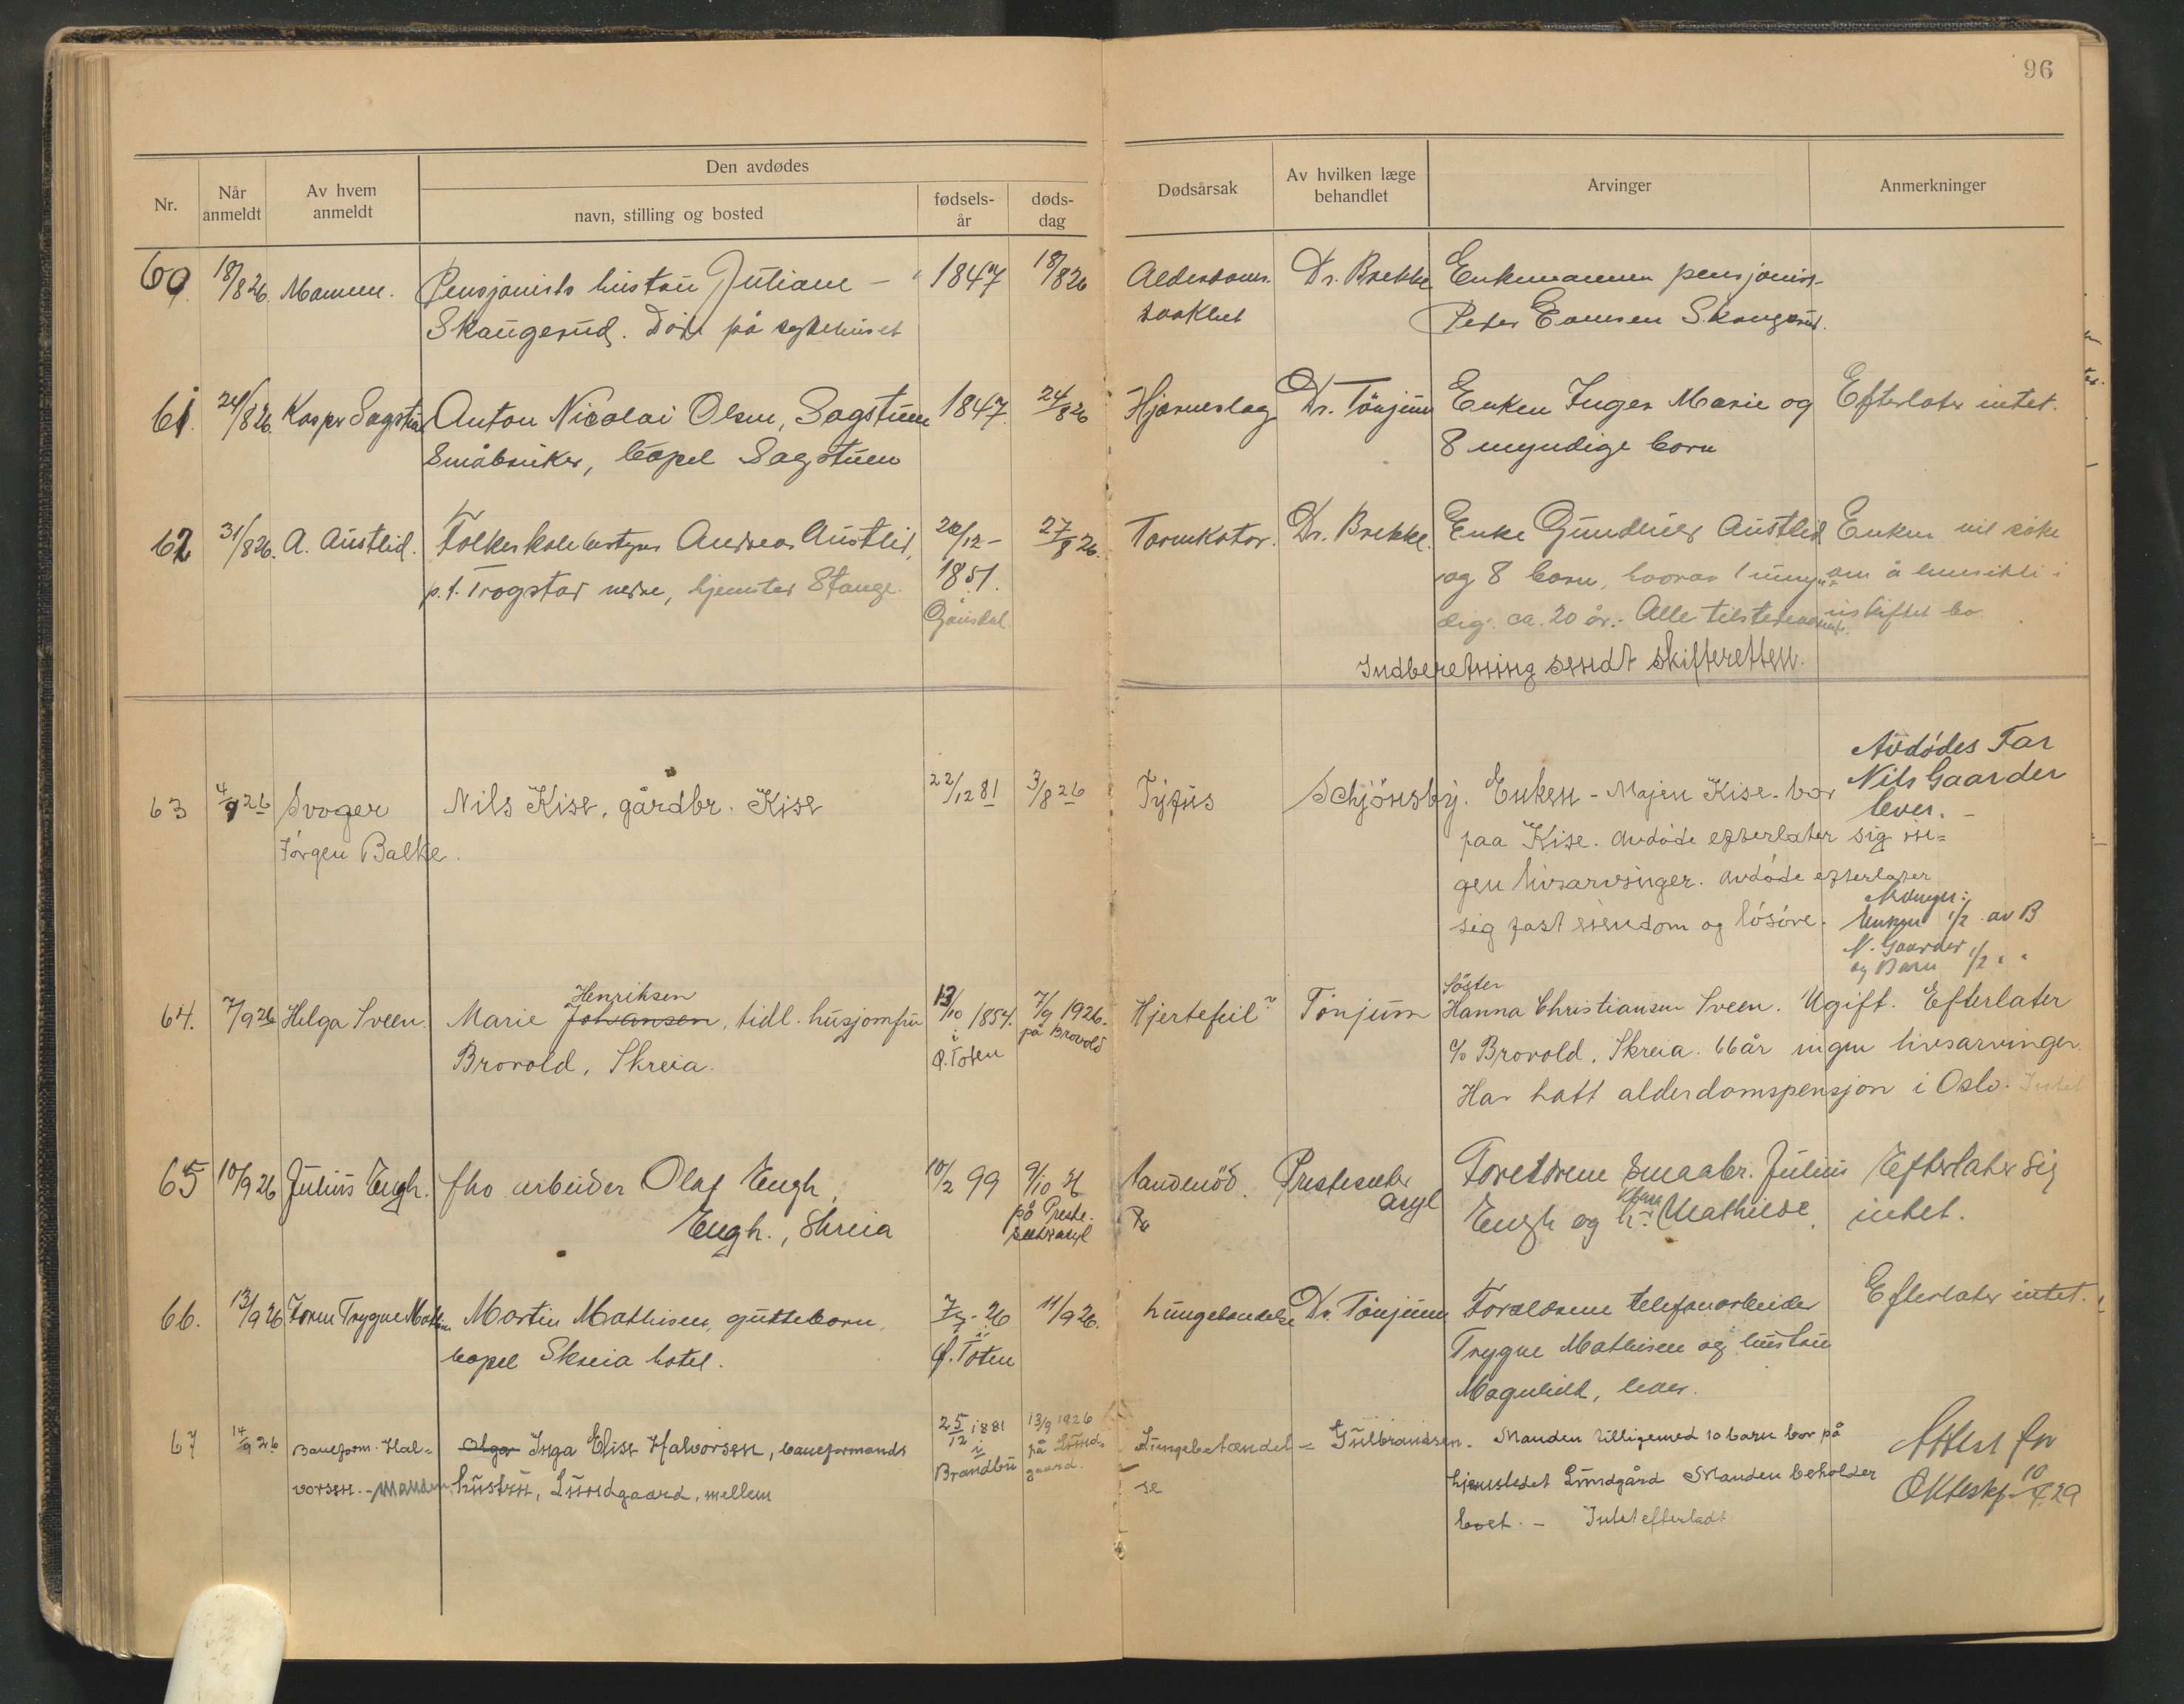 96
Den avdødes
Nr.
Når anmeldt
Av hvem anmeldt
navn, stilling og bosted
fødsels-år
døds-dag
Dødsårsak
Av hvilken læge behandlet
Arvinger
Anmerkninger
60. 18/8 26. Mannen. Pensjonists hustru Juliane – 1847 18/8 26 Alderdoms- Dr. Brekke Enkemannen pensjonist
Skaugerud. Døde på sykehuset svakhet Peder Skaugerud.
61. 24/8 26. Kasper Sagstuen Anton Nicolai Olsen, Sagstuen 1847. 24/8 26 Hjerneslag Dr. Tönjum Enken Inger Marie og Efterlater intet.
Småbruker, bopel Sagstuen 8 myndige born
62 31/8 26. A. Austlid. Folkeskolebestyrer Andreas Austlid, 20/12 – 27/8 26. Tarmkatar. Dr. Brekke. Enke Gundhild Austlid Enken vil söke
p.t. Trogstad nedre, hjemsted Stange. 1851. og 8 born, hvorav 1 umyn- om å bli i
Gausdal. dig. ca. 20 år. Alle tilstedeværende. uskiftet bo
Indberetning sendt skifteretten.
63 4/9 26 Svoger Nils Kise, gårdbr. Kise 22/12 81 3/8 26 Tyfus Schjönsby. Enken – Majen Kise – bor
Avdödes Far
Nils Gaarder
lever. –
Jörgen Balke. paa Kise. Avdöde efterlater sig in-
gen livsarvinger. Avdöde efterlater
sig fast eiendom og lösöre.
Arvinger:
Enken 1/2 av B
N. Gaarder
og Barn 1/2 " "
64. 7/9 26 Helga Sveen. Marie Henriksen Johansen, tidl. husjomfru 13/10 1854. 7/9 1926. Hjertefeil Tönjum Söster
Hanna Christiansen Sveen. Ugift. Efterlater
Brovold, Skreia. i Ö. Toten på Brovold c/o Brovold, Skreia. 66 år ingen livsarvinger.
Har hatt alderdomspensjon i Oslo. Intet
65 10/9 26 Julius Engh. fho arbeider Olaf Engh, 10/2 99 9/10 26 Prestesæter Foreldrene smaabr. Julius Efterlater sig
Engh., Skreia på Preste-sæter asyl asyl Engh og h. Mathilde. intet.
66. 13/9 26 Faren Trygve Mathisen Martin Mathisen, guttebarn, 7/7 - 26 11/9 26. Lungebetendelse Dr. Tönjum Foreldrene telefonarbeider Efterlater intet.
bopel Skreia hotel. Ö. Toten Trygve Mathisen og hustru
Magnhild, lever.
67 14/9 26 Baneform. Hal- Olga Inga Elise Halvorsen, baneformands 25/12 1881 13/9 1926 Lungebetændel- Gulbrandsen. Manden tilligemed 10 barn bor på
vorsen. – Manden. hustru, Lundgaard, mellem i Brandbu på Lund-gaard. se hjemstedet Lundgård Manden beholder
boet. – Intet efterladt
Attest for
10/4 29